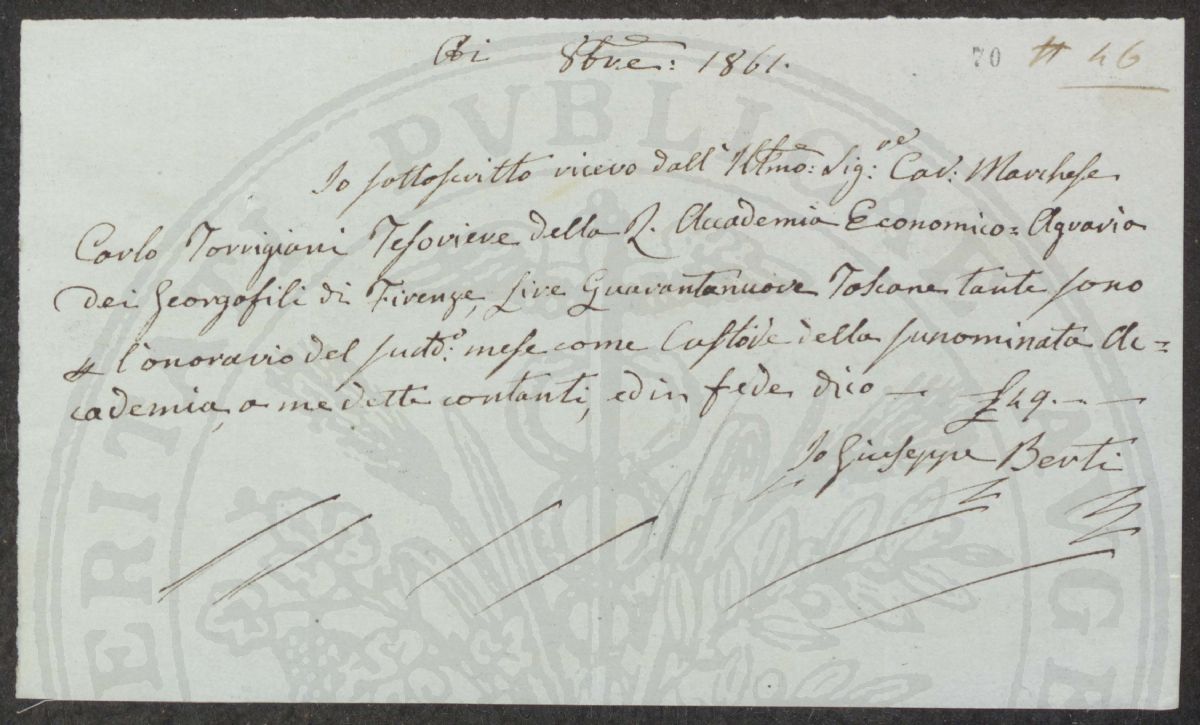 Adi 8bre: 1861.
70 # 46
Io sottoscritto ricevo dall' Illmo: Sig:re Cav: Marchese
Carlo Torrigiani Tesoriere della R. Accademia Economico=Agraria
dei Georgofili di Firenze, Lire Quarantanuove Toscane tante sono
p l'onorario del sudd:o mese come Custode della sunominata Ac=
cademia, a me dette contanti, ed in fede dico — £ 49. — —
Io Giuseppe Berti
PVBLICAE